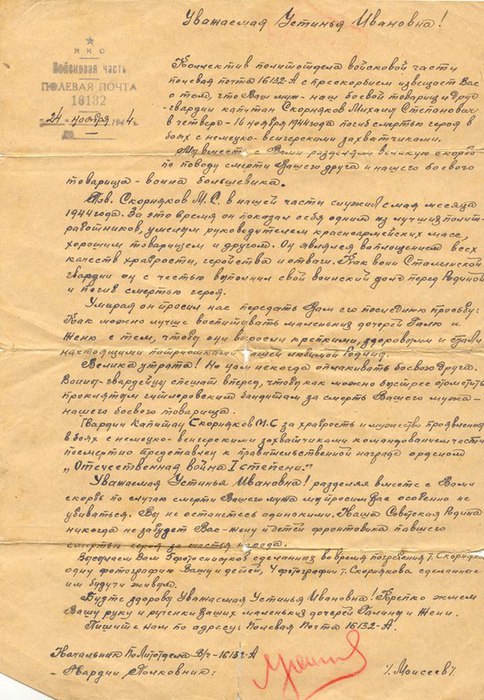 Уважаемая Устинья Ивановна!
НКО
Войсковая часть
ПОЛЕВАЯ ПОЧТА
16132
21 ноября 1944
Коллектив политотдела войсковой части
полевая почта 16132-А с прескорбием извещает Вас
о том, что Ваш муж - наш боевой товарищ и друг
гвардии капитан Скорняков Михаил Степанович
в четверг - 16 ноября 1944 года погиб смертью героя в
боях с немецко-венгерскими захватчиками.
Мы вместе с Вами разделяем великую скорбь
по поводу смерти Вашего друга и нашего боевого
товарища - воина большевика.
Тов. Скорняков М.С. в нашей части служил с мая месяца
1944 года. За это время он показал себя одним из лучших полит-
работников, умелым руководителем красноармейских масс,
хорошим товарищем и другом. Он являлся воплощением всех
качеств храбрости, геройства и отваги. Как воин Сталинской
гвардии он с честью выполнил свой воинский долг перед Родиной
и погиб смертью героя.
Умирая он просил нас передать Вам его последнюю просьбу:
Как можно лучше воспитывать маленьких дочерей Галю и
Женю с тем, чтобы они выросли крепкими, здоровыми и стали
настоящими патриотками нашей любимой Родины.
Велика утрата! Но нам некогда оплакивать боевого друга.
Воины-гвардейцы спешат вперед, чтобы как можно быстрее отомстить
проклятым гитлеровским бандитам за смерть Вашего мужа -
нашего боевого товарища.
Гвардии Капитан Скорняков М.С за храбрость и мужество проявленные
в боях с немецко-венгерскими захватчиками командованием части
посмертно представлен к правительственной награде орденом
„Отечественная война I степени."
Уважаемая Устинья Ивановна! разделяя вместе с Вами
скорбь по случаю смерти Вашего мужа мы просим Вас особенно не
убиваться. Вы не останетесь одинокими. Наша Советская Родина
никогда не забудет Вас - жену и детей фронтовика павшего
смертью героя за счастье народа.
Высылаем Вам 3 фотоснимков сделанных во время погребения т. Скорнякова
одну фотографию Вашу и детей, 4 фотографии т. Скорнякова сделанные
им будучи живым.
Будьте здорова Уважаемая Устинья Ивановна! Крепко жмем
Вашу руку и рученки Ваших маленьких дочерей Галины и Жени.
Пишите нам по адресу: Полевая Почта 16132-А.
Начальник Политотдела В/ч-16132-А
Гвардии Полковник:
/. Моисеев /.